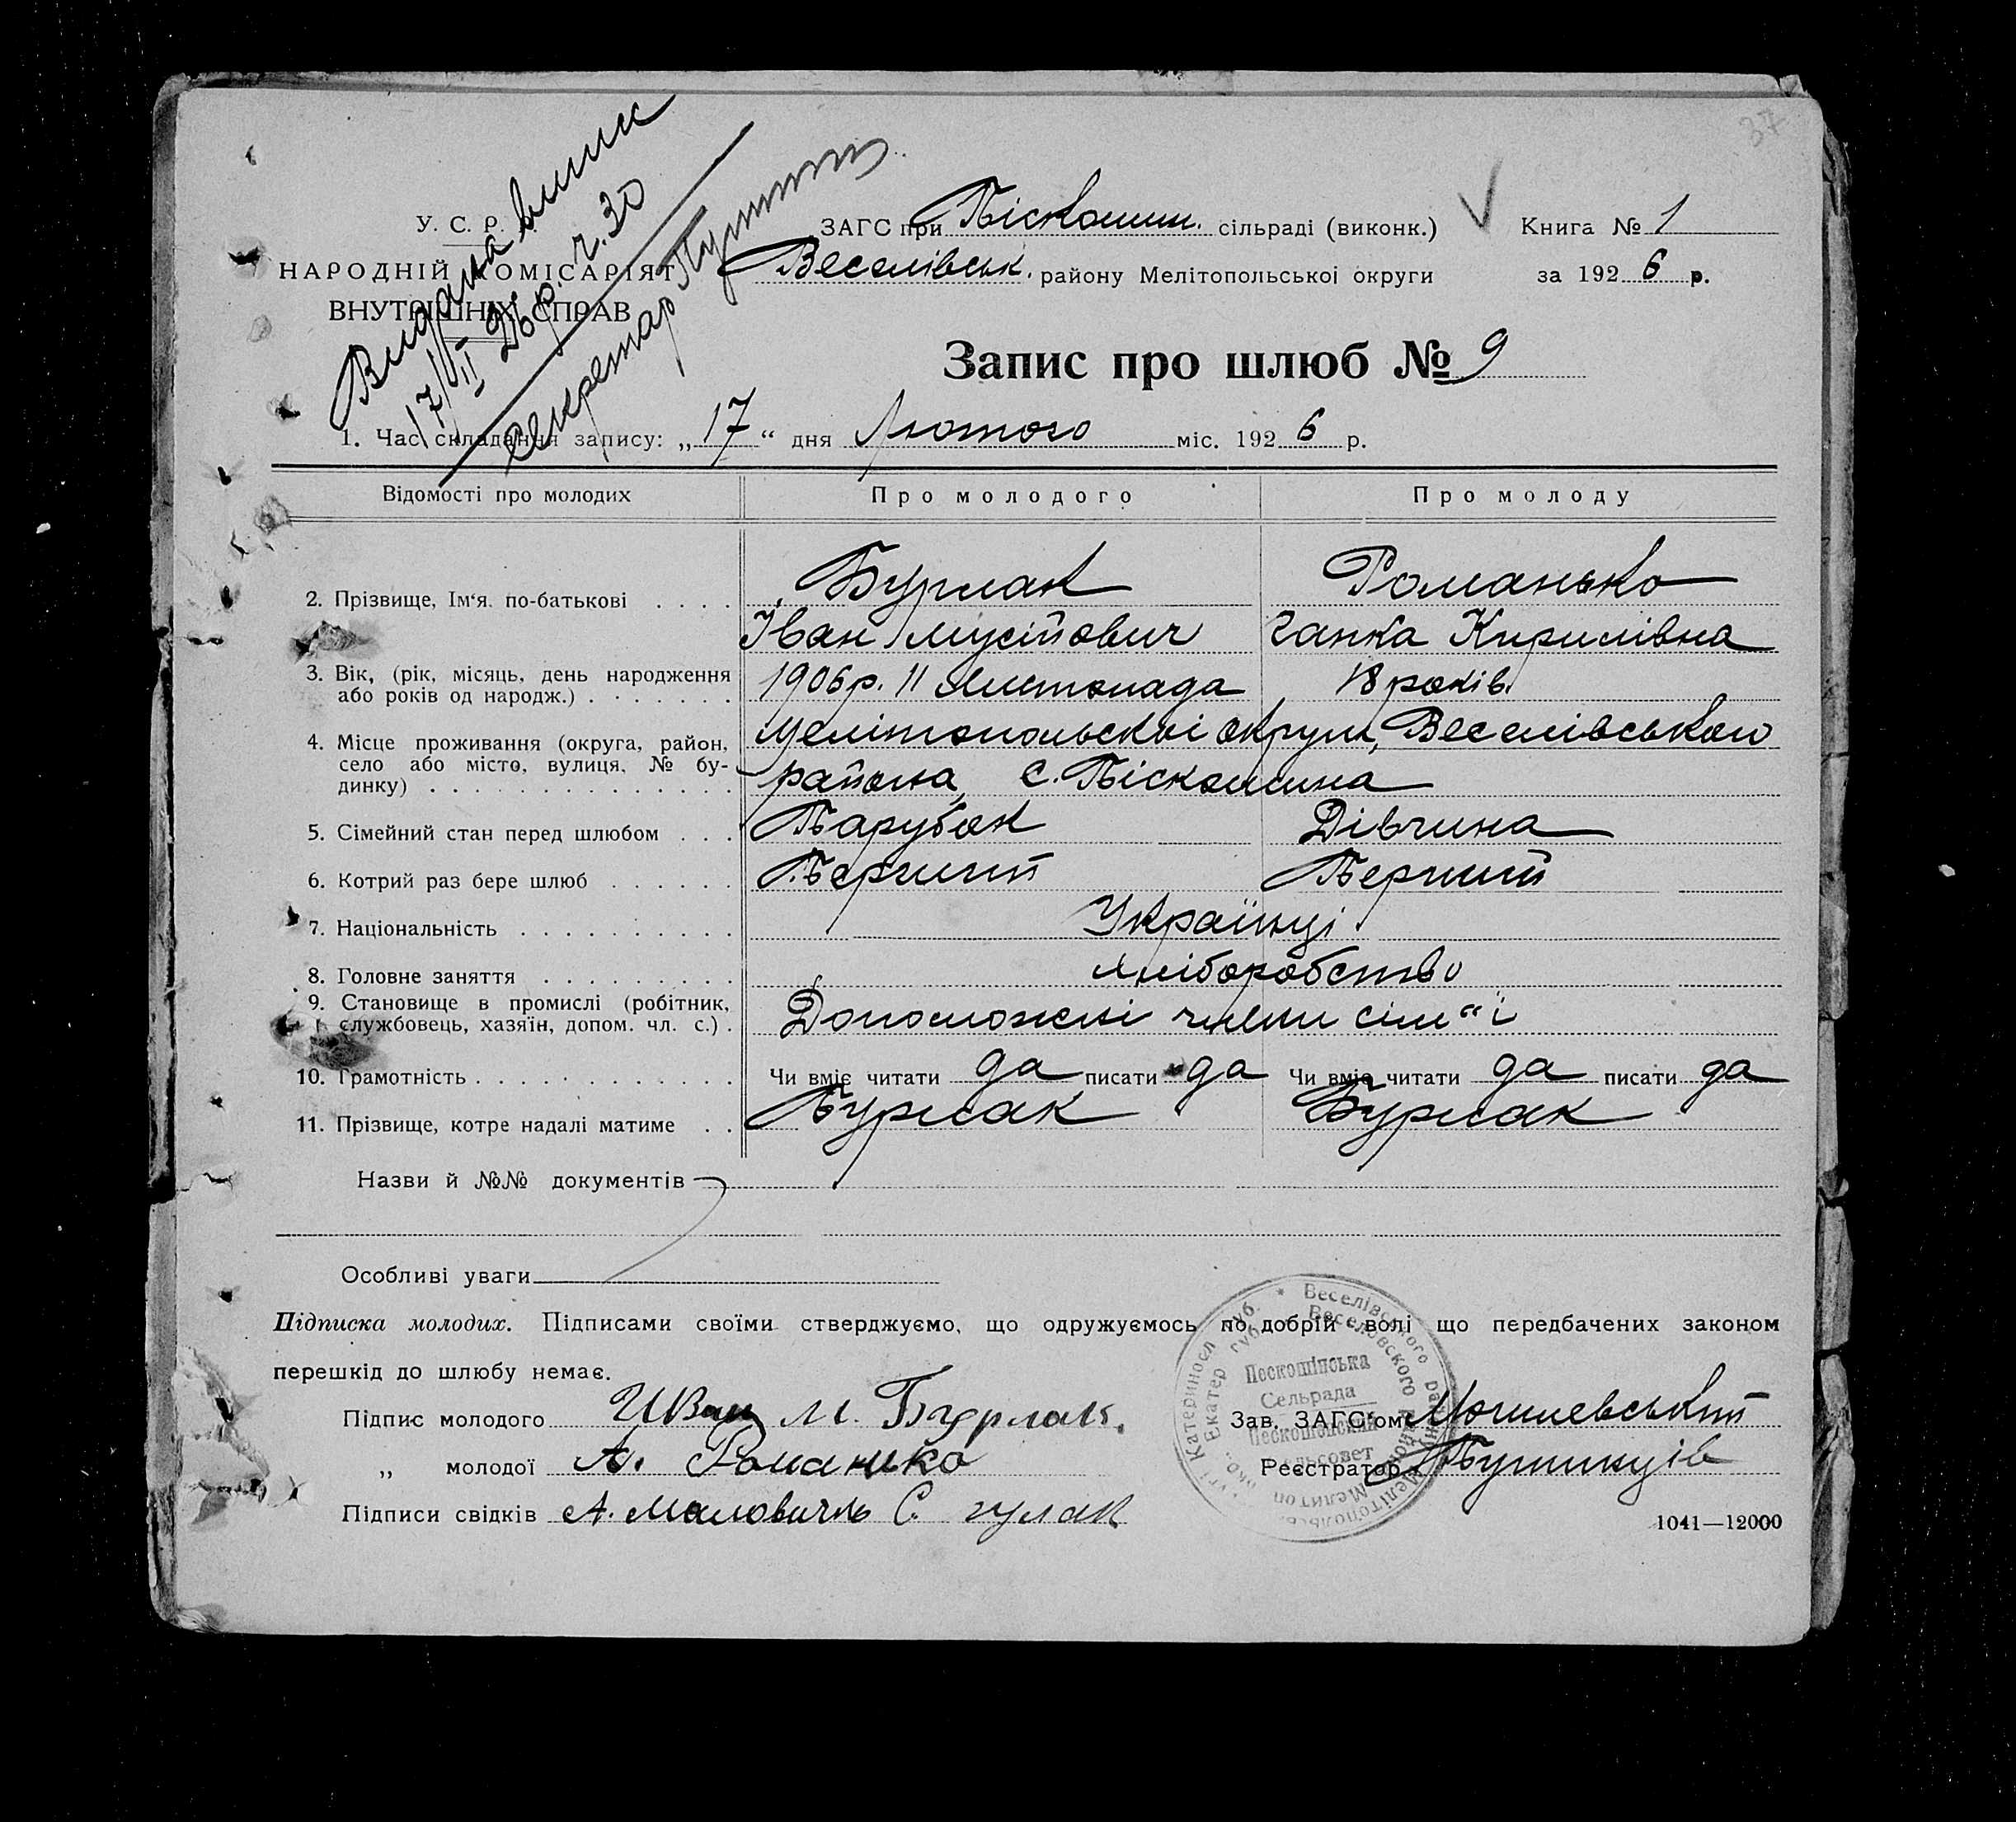 37
Видана випис
17/II 26 р. ч. 30
секретар
У. С. Р. Р.
НАРОДНІЙ КОМІСАРІЯТ
ВНУТРІШНІХ СПРАВ
ЗАГС при Піскошин. сільраді (виконк.)
Веселівськ. району Мелітопольської округи
Книга № 1
за 1926 р.
Запис про шлюб № 9
1. Час складання запису: „17“ дня Лютого міс. 1926 р.
Відомості про молодих Про молодого Про молоду
2. Прізвище, Ім‘я. по-батькові . . . . Бурлак Романько
Іван Мусійович Ганка Кирилівна
3. Вік, (рік, місяць, день народження
або років од народж.) . . . . . . . 1906 р. 11 Листопада 18 років
4. Місце проживання (округа, район,
село або місто, вулиця, № бу-
динку) . . . . . . . . . . . . . .
Мелітопольскої округи, Веселівського
района, с. Піскошина
5. Сімейний стан перед шлюбом . . . Парубок Дівчина
6. Котрий раз бере шлюб . . . . . . Перший Перший
7. Національність . . . . . . . . . . Українці
8. Головне заняття . . . . . . . . . Хліборобство
9. Становище в промислі (робітник,
службовець, хазяїн, допом. чл. с.) . Допоможні члени сім"ї
10. Грамотність . . . . . . . . . . . . Чи вміє читати да писати да Чи вміє читати да писати да
11. Прізвище, котре надалі матиме . . Бурлак Бурлак
Назви й №№ документів
Особливі уваги
Підписка молодих. Підписами своїми стверджуємо, що одружуємось по добрій волі що передбачених законом
перешкід до шлюбу немає.
Підпис молодого Иван М. Бурлак.
„ молодої А. Романько
Підписи свідків А. Маловичко С. гулак
Зав. ЗАГС'ом Могилевський
Реєстратор
Веселівського району Мелітопольс
Катериносл губ.
Веселовского района Мелитоп окр. Екатер губ.
Пескошінська
Сельрада
Пескошинский
ельсовет
1041—12000